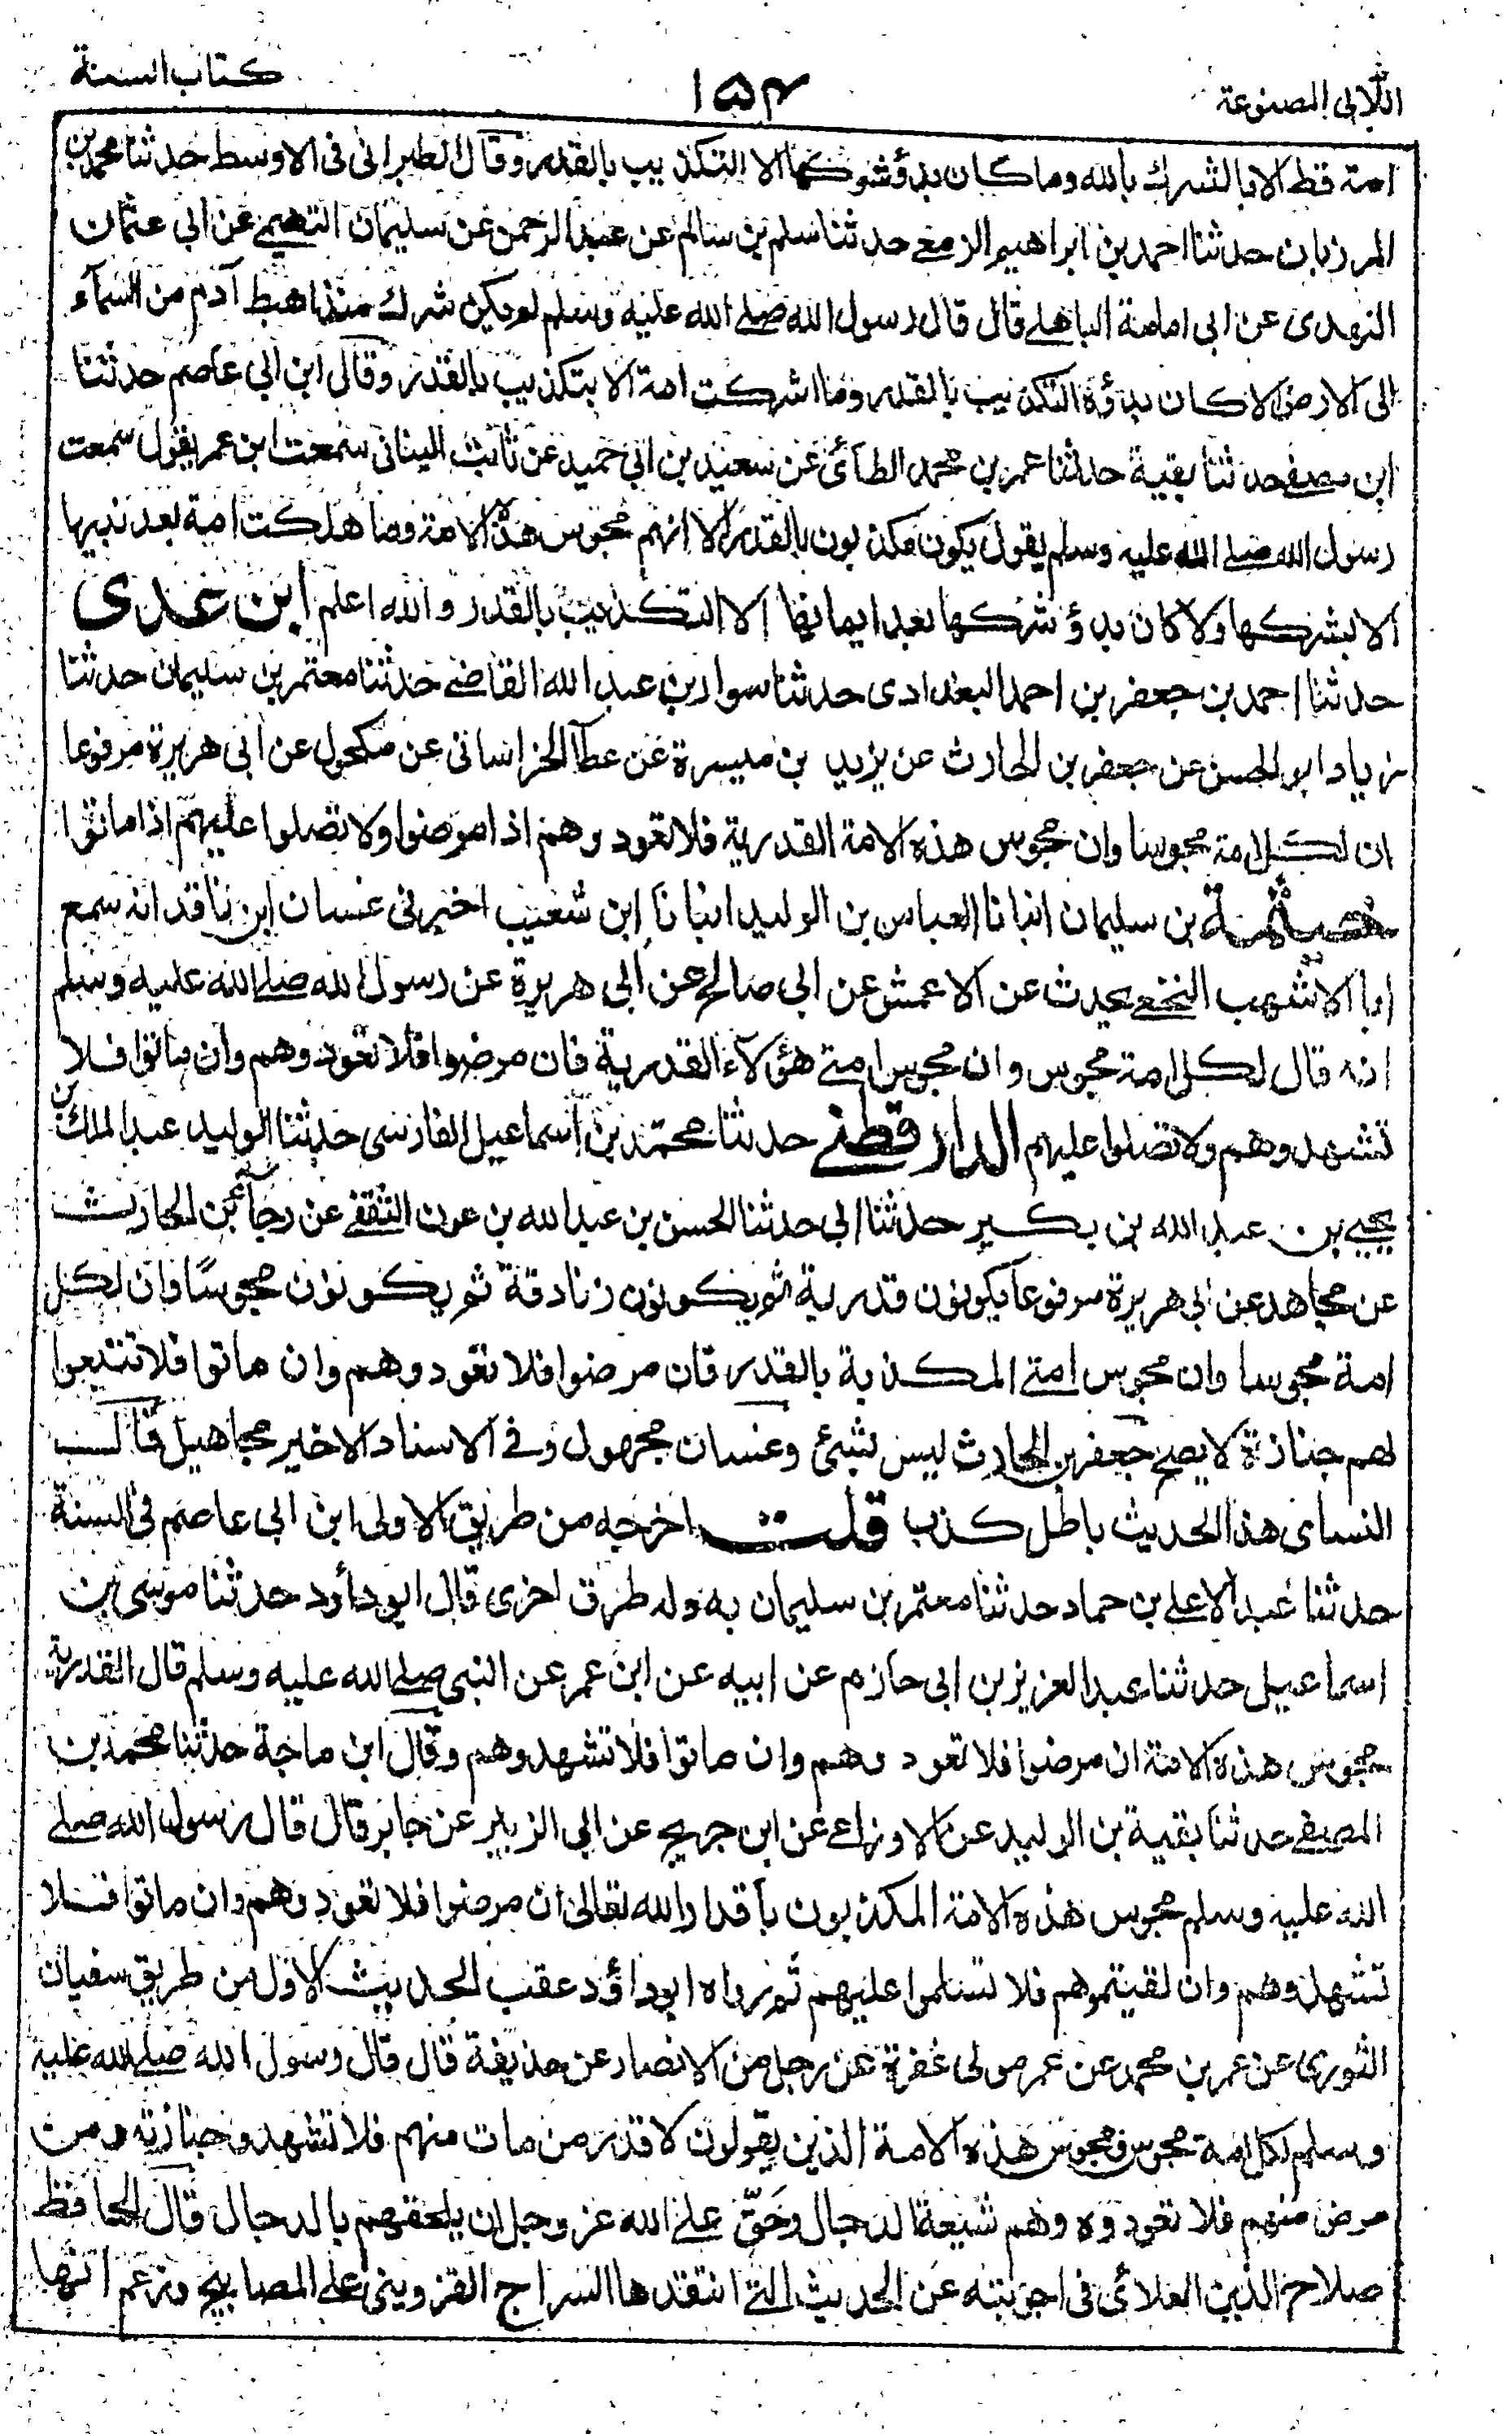 اللآلي المصنوعة
١٥٤
كتاب السنة
امة قط الا بالشرك بالله وما كان بدؤ شركها الا التكذيب بالقدر وقال الطبراني في الاوسط حدثنا محمد بن
المرزبان حدثنا احمد بن ابراهيم الزمعي حدثنا سلم بن سالم عن عبد الرحمن عن سليمان التيمي عن ابي عثمان
النهدى عن ابي امامة الباهلے قال قال رسول الله صلے الله عليه وسلم لم يكن شرك منذ اهبط آدم من السمآء
الى الارض الا كان بدؤه التكذيب بالقدر وما اشركت امة الا بتكذيب بالقدر وقال ابن ابي عاصم حدثنا
ابن مصفے حدثنا بقية حدثنا عمر بن محمد الطآئي عن سعيد بن ابي حميد عن ثابت البناني سمعت ابن عمر يقول سمعت
رسول الله صلے الله عليه وسلم يقول يكون مكذبون بالقدر الا انهم مجوس هذه الامة وما هلكت امة بعد نبيها
الا بشركها ولا كان بدؤ شركها بعد ايمانها الا التكذيب بالقدر والله اعلم ابن عدى
حدثنا احمد بن جعفر بن احمد البغدادى حدثنا سوار بن عبد الله القاضے حدثنا معتمر بن سليمان حدثنا
زياد ابو الحسن عن جعفر بن الحارث عن يزيد بن ميسرة عن عطآ الخراساني عن مكحول عن ابي هريرة مرفوعا
ان لكل امة مجوسا وان مجوس هذه الامة القدرية فلا تعودوهم اذا مرضوا ولا تصلوا عليهم اذا ماتوا
خيثمة بن سليمان انبانا العباس بن الوليد انبانا ابن شعيب اخبرني غسان ابن ناقد انه سمع
ابا الاشهب النخعے يحدث عن الاعمش عن ابي صالح عن ابي هريرة عن رسول الله صلے الله عليه وسلم
انه قال لكل امة مجوس وان مجوس امتے هؤلآء القدرية فان مرضوا فلا تعودوهم وان ماتوا فلا
تشهدوهم ولا تصلوا عليهم الدارقطنے حدثنا محمد بن اسماعيل الفارسى حدثنا الوليد عبد الملك بن
يحيے بن عبد الله بن بكير حدثنا ابي حدثنا الحسن بن عبد الله بن عون الثقفے عن رجآء بن الحارث
عن مجاهد عن ابي هريرة مرفوعا يكونون قدرية ثم يكونون زنادقة ثم يكونون مجوسًا وان لكل
امة مجوسا وان مجوس امتے المكذبة بالقدر فان مرضوا فلا تعودوهم وان ماتوا فلا تتبعوا
لهم جنازة لا يصح جعفر بن الحارث ليس بشئ وغسان مجهول وفے الاسناد الاخير مجاهيل قال
النساى هذا الحديث باطل كذب قلت اخرجه من طريق الاولى ابن ابي عاصم في السنة
حدثنا عبد الاعلے بن حماد حدثنا معتمر بن سليمان به وله طرق اخرى قال ابو داود حدثنا موسى بن
اسماعيل حدثنا عبد العزيز بن ابي حازم عن ابيه عن ابن عمر عن النبي صلے الله عليه وسلم قال القدرية
مجوس هذه الامة ان مرضوا فلا تعودوهم وان ماتوا فلا تشهدوهم وقال ابن ماجة حدثنا محمد بن
المصفے حدثنا بقية بن الوليد عن الاوزاعے عن ابن جريج عن ابي الزبير عن جابر قال قال رسول الله صلے
الله عليه وسلم مجوس هذه الامة المكذبون باقدار الله تعالى ان مرضوا فلا تعودوهم وان ماتوا فلا
تشهدوهم وان لقيتموهم فلا تسلموا عليهم ثم رواه ابو داؤد عقب الحديث الاول من طريق سفيان
الثورى عن عمر بن محمد عن عمر مولى غفرة عن رجل من الانصار عن حذيفة قال قال رسول الله صلے الله عليه
وسلم لكل امة مجوس ومجوس هذه الامة الذين يقولون لا قدر من مات منهم فلا تشهدوا جنازته ومن
مرض منهم فلا تعودوه وهم شيعة الدجال وحَقّ علے الله عز وجل ان يلحقهم بالدجال قال الحافظ
صلاح الدين العلائى في اجوبته عن الحديث التے انتقدها السراج القزوينى علے المصابيح وزعم انها